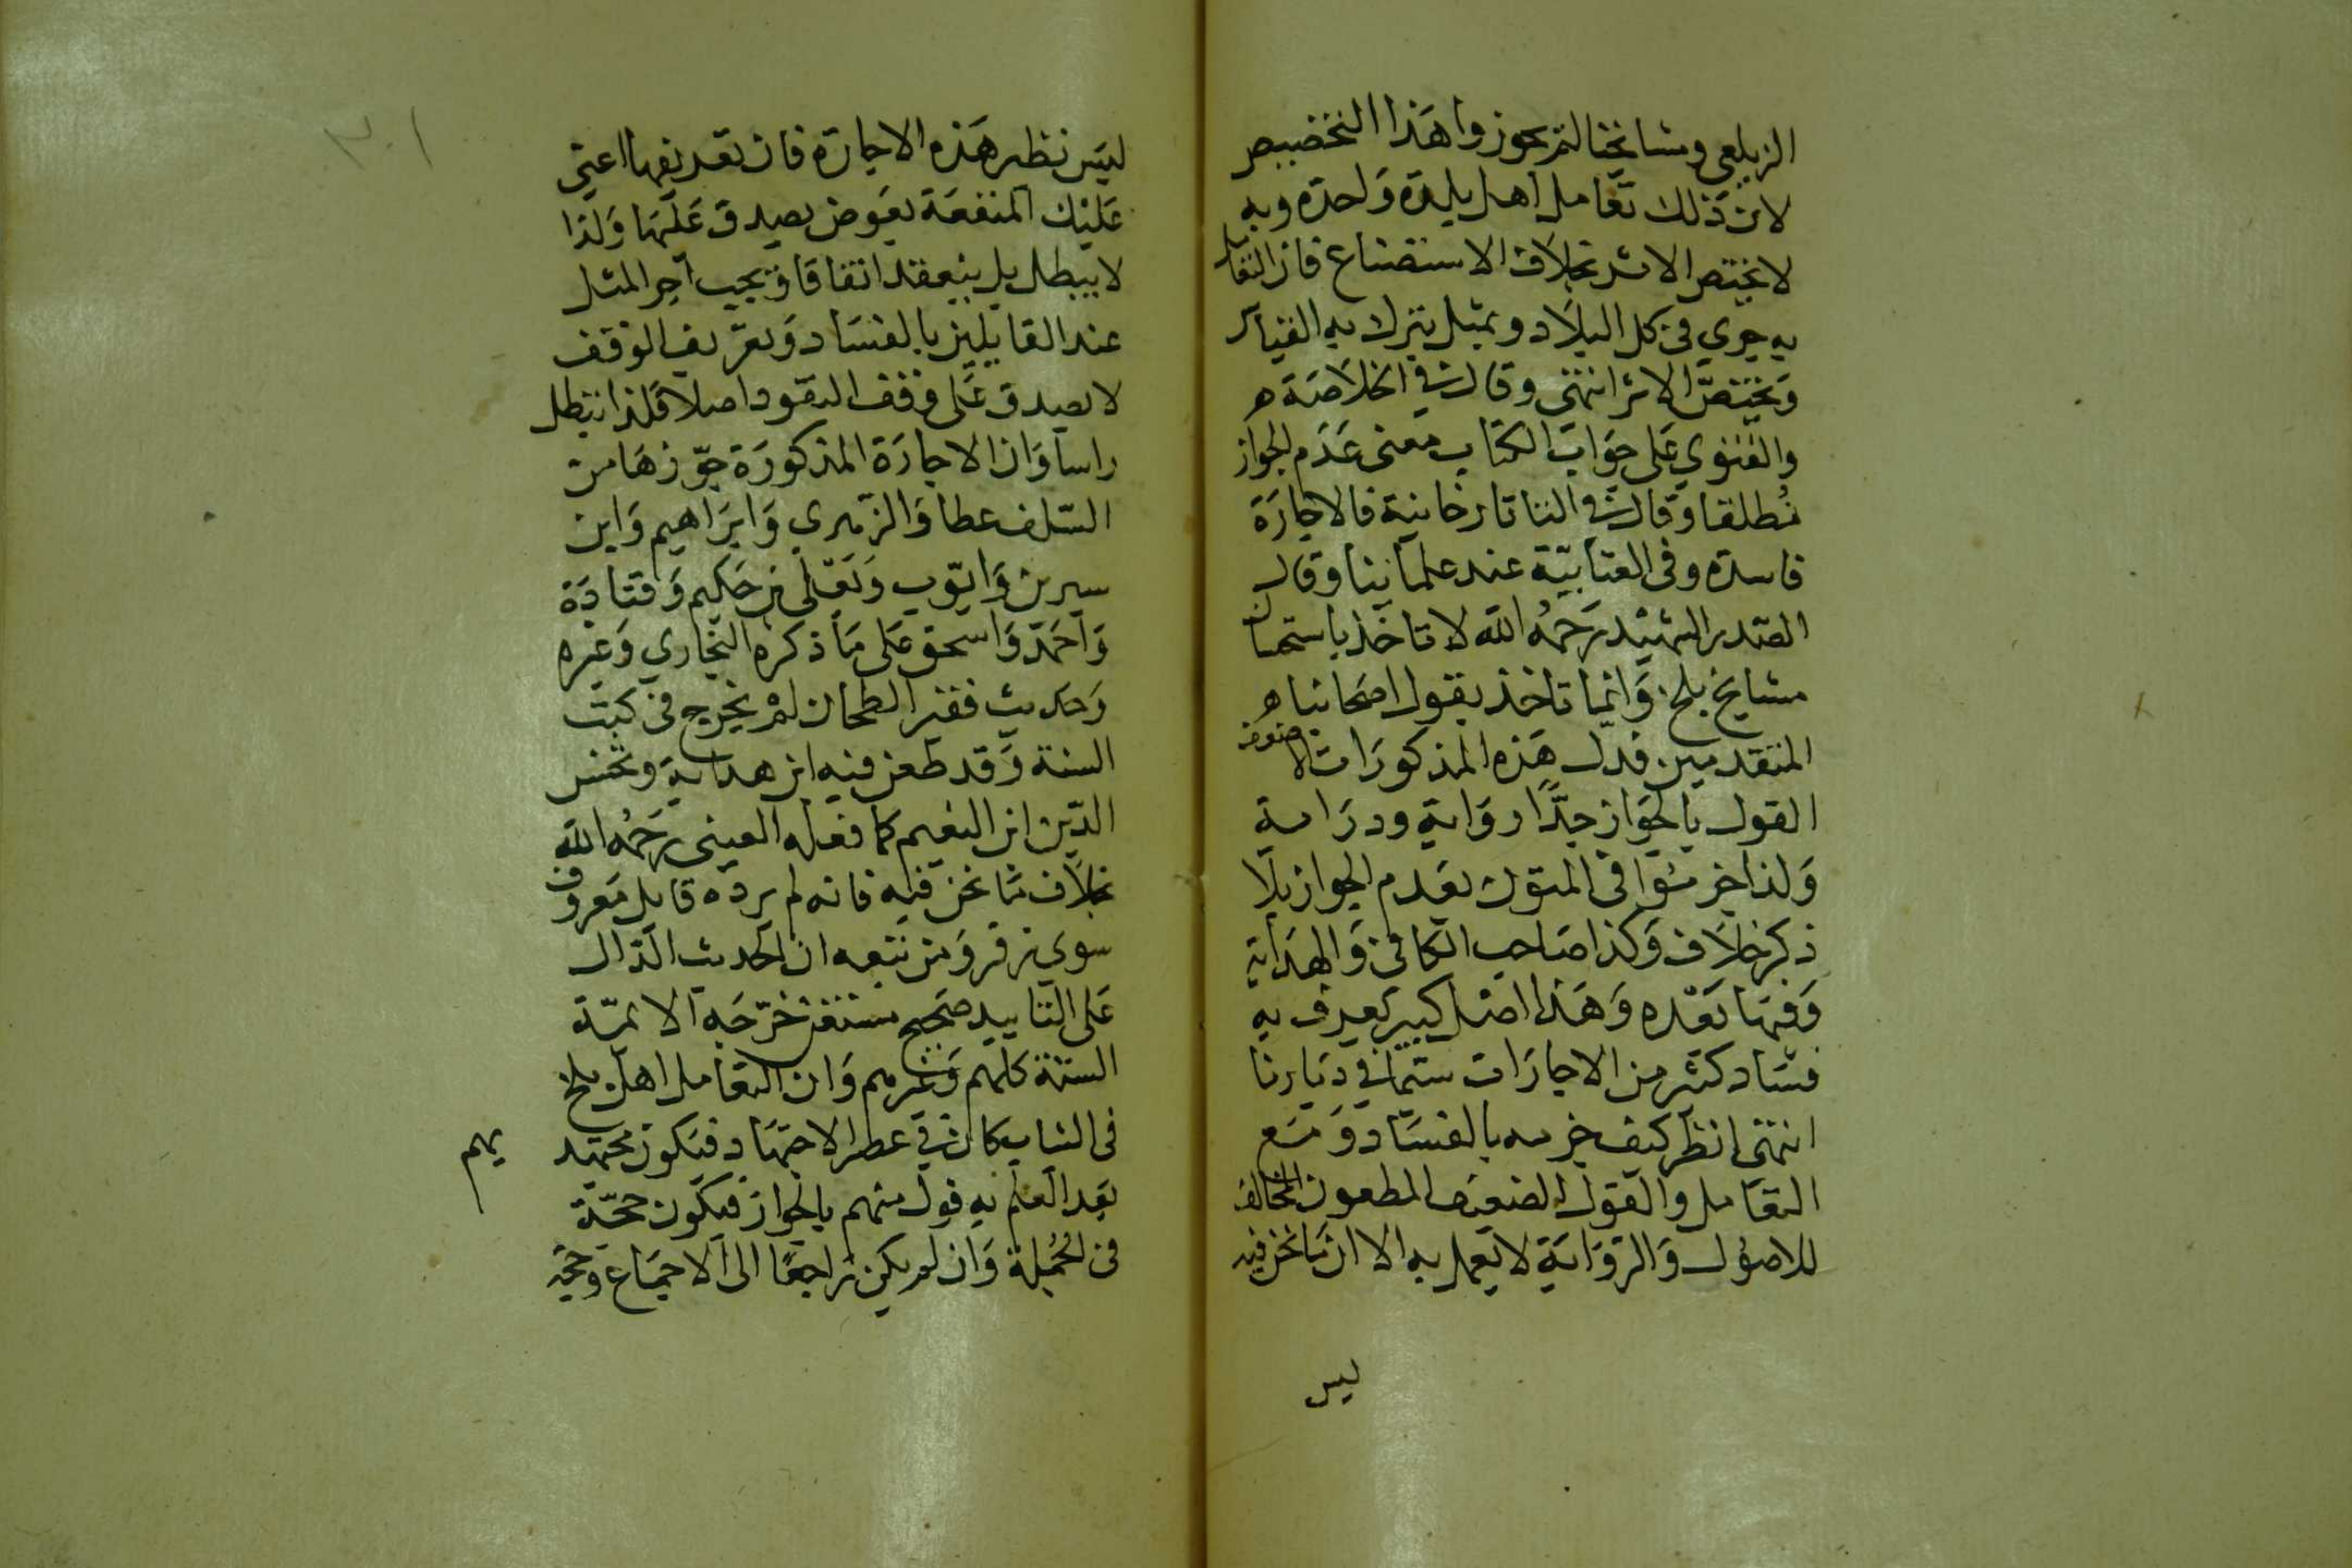 الزيلعي ومشايخنا لم يجوزوا هذا التخصيص
لان ذلك تعامل اهل بلدة واحدة وبه
لا يختص الاثر بخلاف الاستصناع فان التعامل
به جري في كل البلاد وبمثل يترك به القياس
ويختص الاثر انتهى وقال في الخلاصة ه
والفتوي على جواب الكتاب معنى عدم الجواز
مطلقا وقال في التاتارخانية فالاجارة
فاسدة وفي العتابية عند علمائنا وقال
الصدر الشهيد رحمه الله لا ناخذ باستحسان
مشايخ بلخ وانما ناخذ بقول اصحابنا ه
المتقدمين فدل هذه المذكورات لا
القول بالجواز جدا رواية ودراية
ولذا جزموا في المتون بعدم الجواز بلا
ذكر خلاف وكذا صاحب الكافي والهداية
وفيها بعده وهذا اصل كبير يعرف به
فساد كثير من الاجارات سيما في ديارنا
انتهى انظر كيف جزمه بالفساد ومنع
التعامل والقول الضعيف المطعون المخالف
للاصول والرواية لا يعمل به الا ان ما نحن فيه
ليس
٣٠١
ليس نظير هذه الاجارة فان تعريفها اعني
عليك المنفعة بعوض يصدق عليها ولذا
لا يبطل بل ينعقد اتفاقا ويجب اجر المثل
عند القايلين بالفساد وتعريف الوقف
لا يصدق على وقف النقود اصلا فلذا تبطل
راسا وان الاجارة المذكورة جوزها من
السلف عطا والزهري وابراهيم وابن
سيرين وايوب ويعلى بن حكيم وقتادة
واحمد واسحق على ما ذكره البخاري وغيره
وحديث قفيز الطحان لم يخرج في كتب
السنة وقد طعن فيه ابن هداية وشمس
الدين ابن النعيم كما فعله العيني رحمه الله
بخلاف ما نحن فيه فانه لم يرده قايل معروف
سوي زفر ومن تبعه ان الحديث الدال
على التابيد صحيح خرجه الائمة
الستة كلهم وغيرهم وان التعامل اهل بلخ
في الثياب كان في عصر الاجتهاد فيكون مجتهد
بعد العلم به قول منهم بالجواز فيكون حجة
في الجملة وان لم يكن راجعا الى الاجماع وحجية